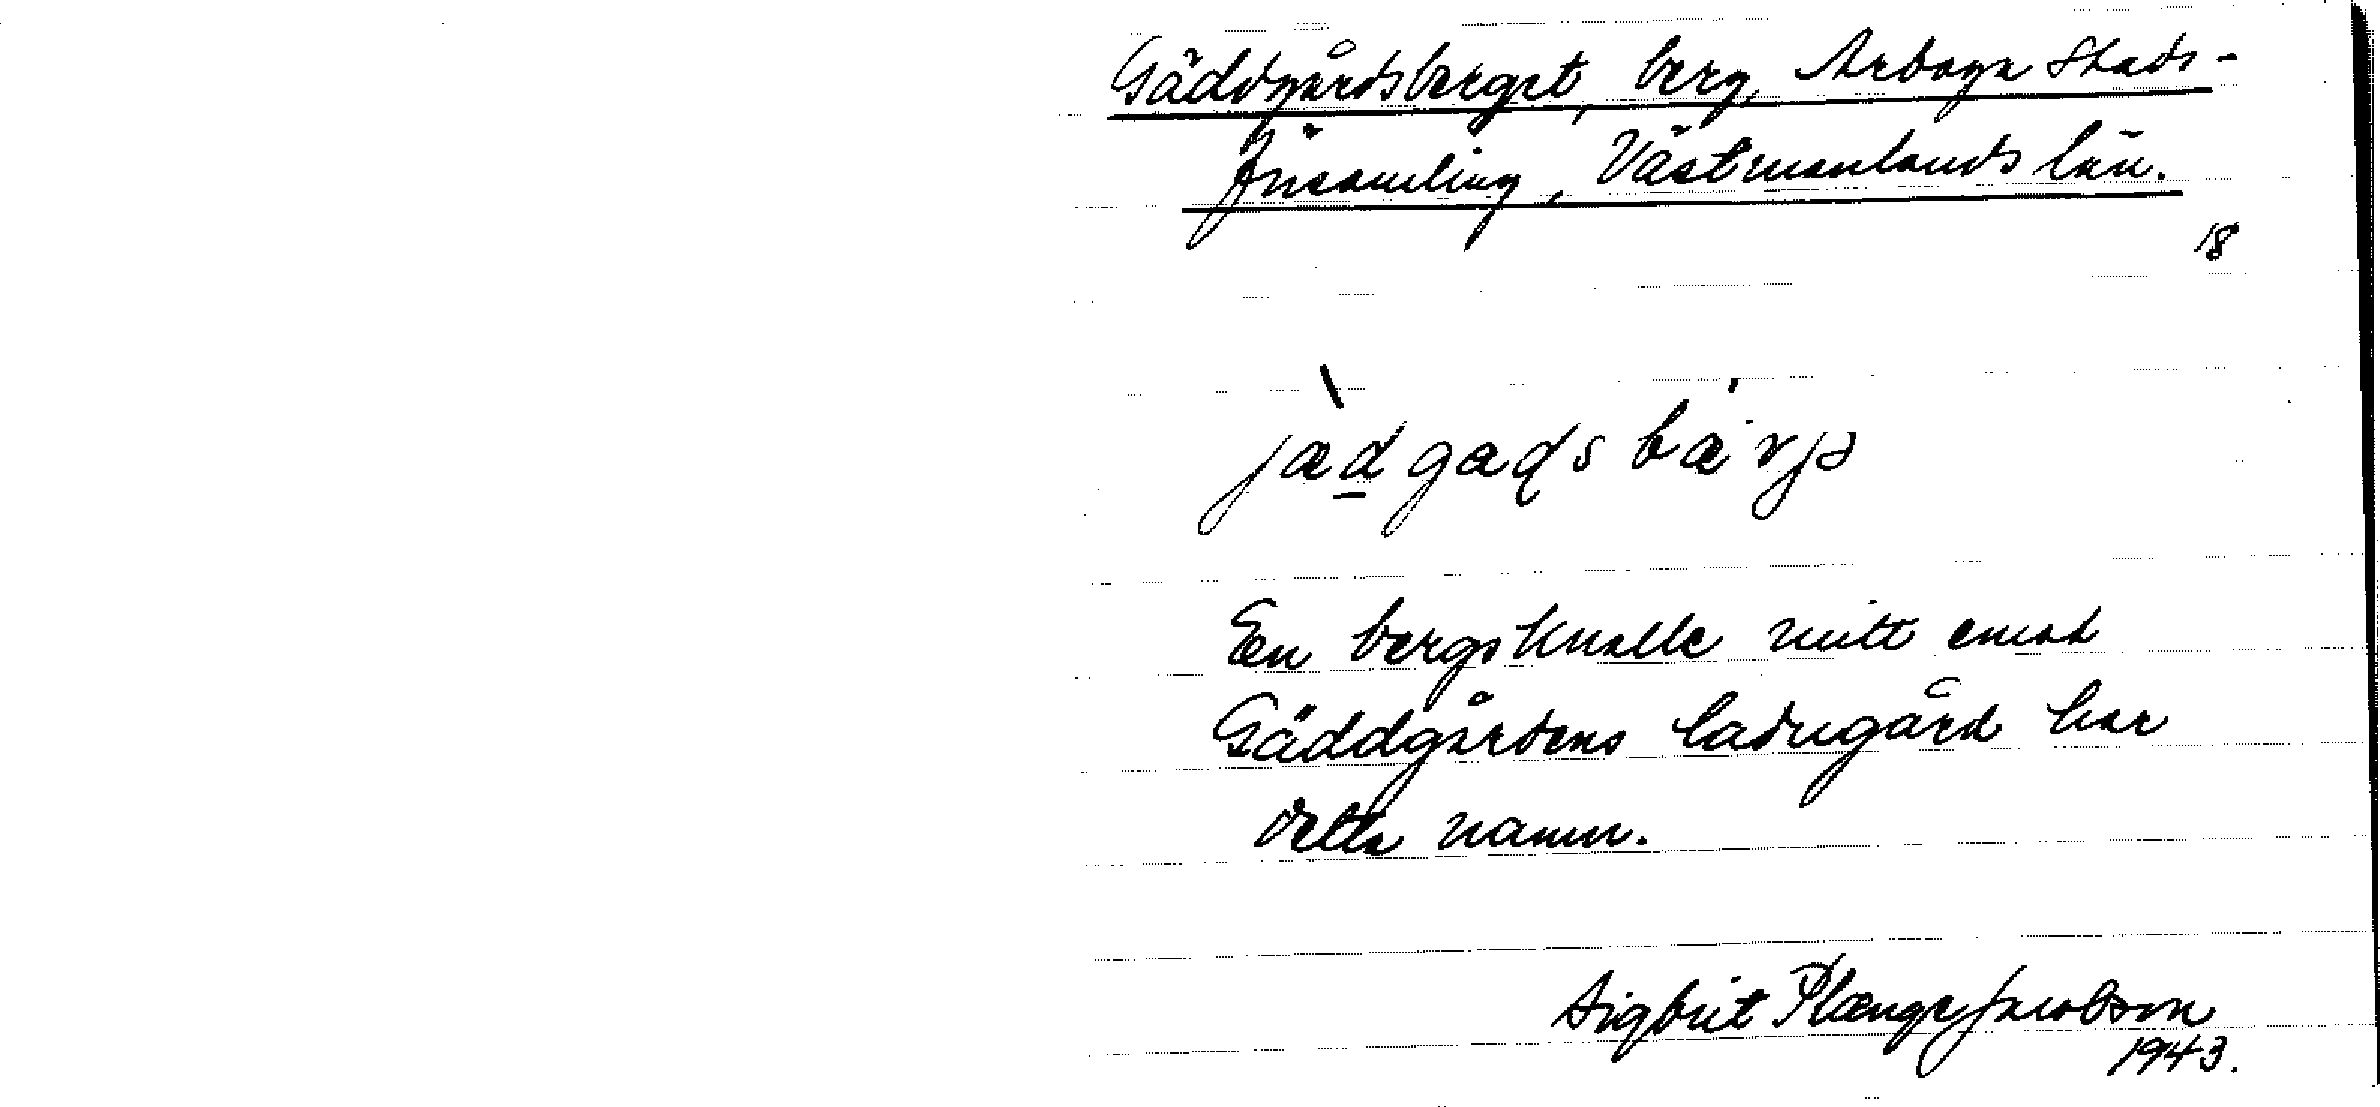 Gäddgårdsberget, berg, Arboga Stads-
församling, Västmanlands län.
18
jæ̀d̲gaɖsbæ'rjə
En bergsknalle mitt emot
Gäddgårdens ladugård har
detta namn.
Sigbrit Plænge Jacobson
1943.